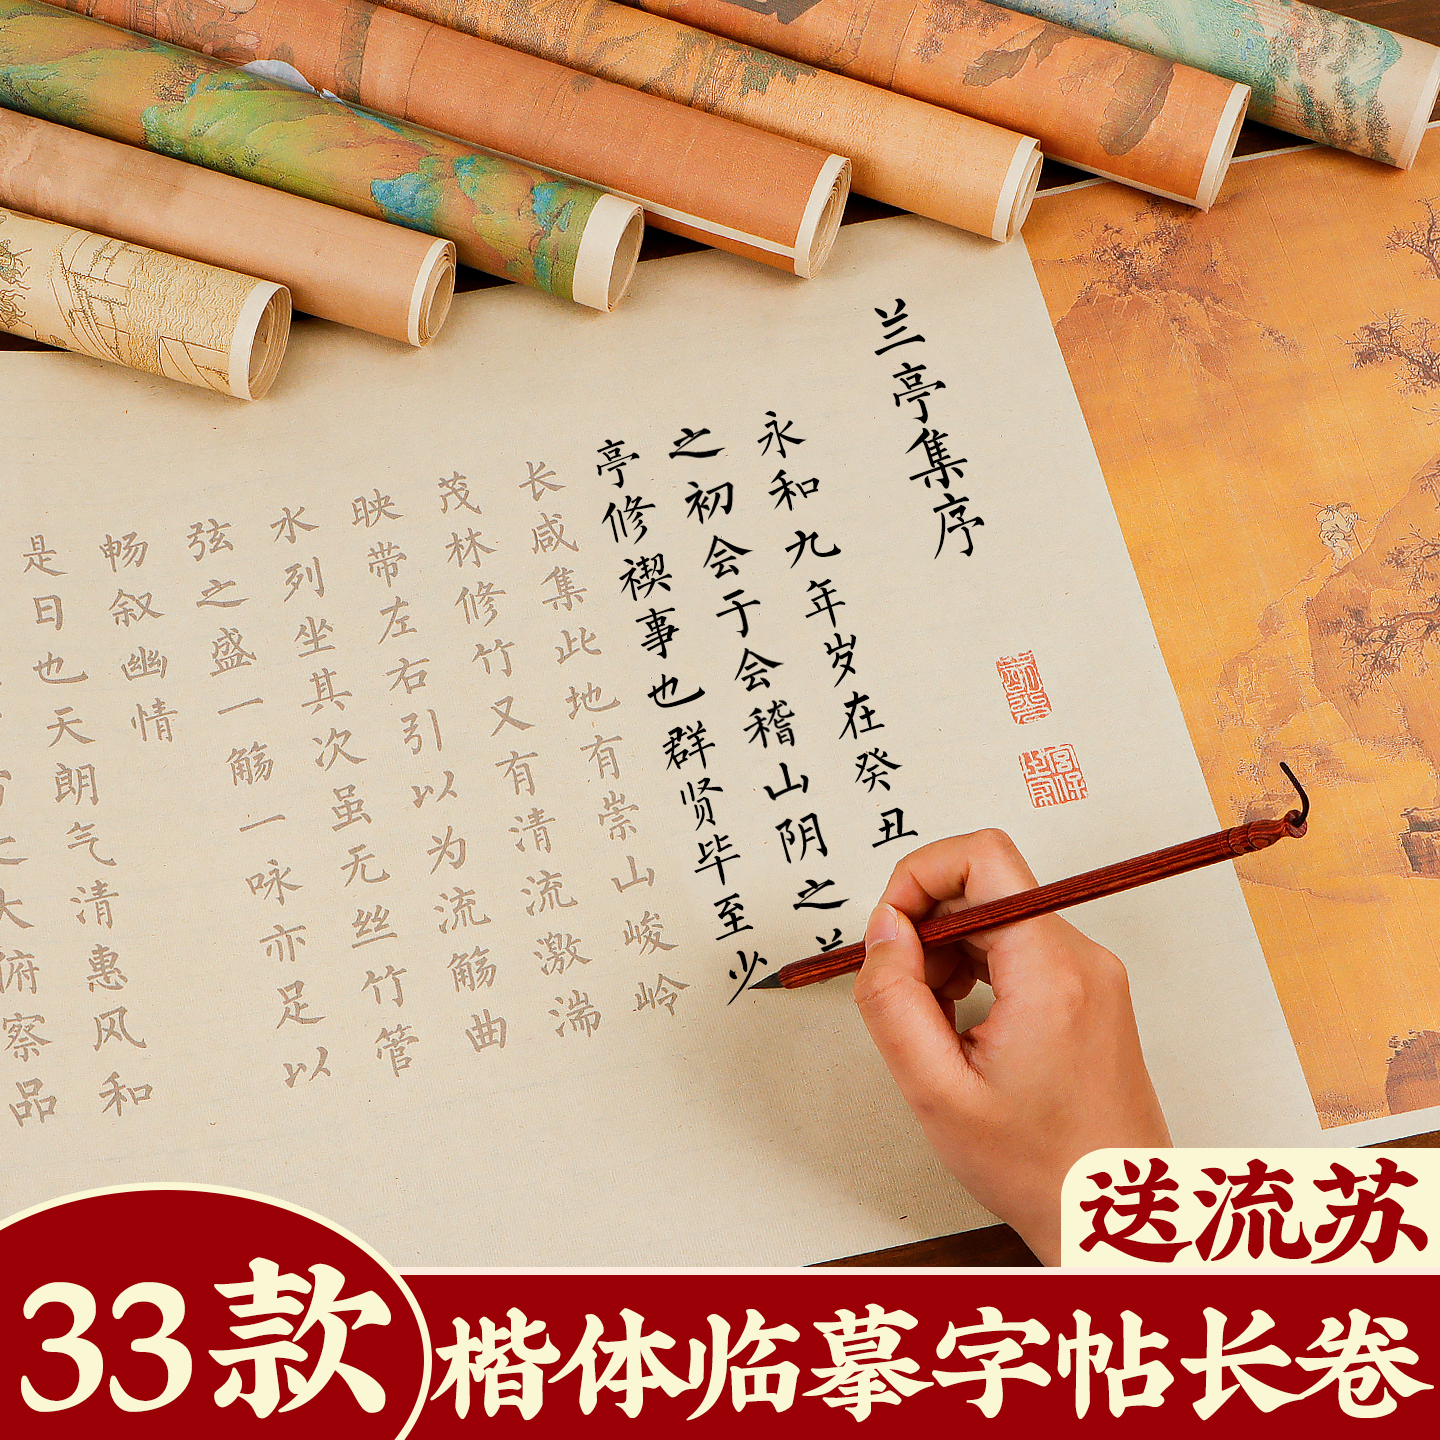 兰亭集序
永和九年岁在癸丑
之初会于会稽山阴之
亭修禊事也群贤毕至少
长咸集此地有崇山峻岭
茂林修竹又有清流激湍
映带左右引以为流觞曲
水列坐其次虽无丝竹管
弦之盛一觞一咏亦足以
畅叙幽情
是日也天朗气清惠风和
俯察品
送流苏
33款
楷体临摹字帖长卷